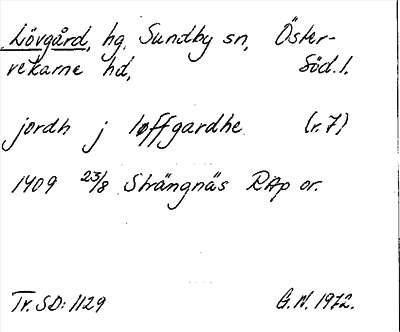 Lövgård, hg, Sundby sn, Öster-
rekarne hd, Söd.l.
jordh j løffgardhe (r.7)
1409 23/8 Strängnäs RAp or.
Tr. SD: 1129 G.W. 1972.